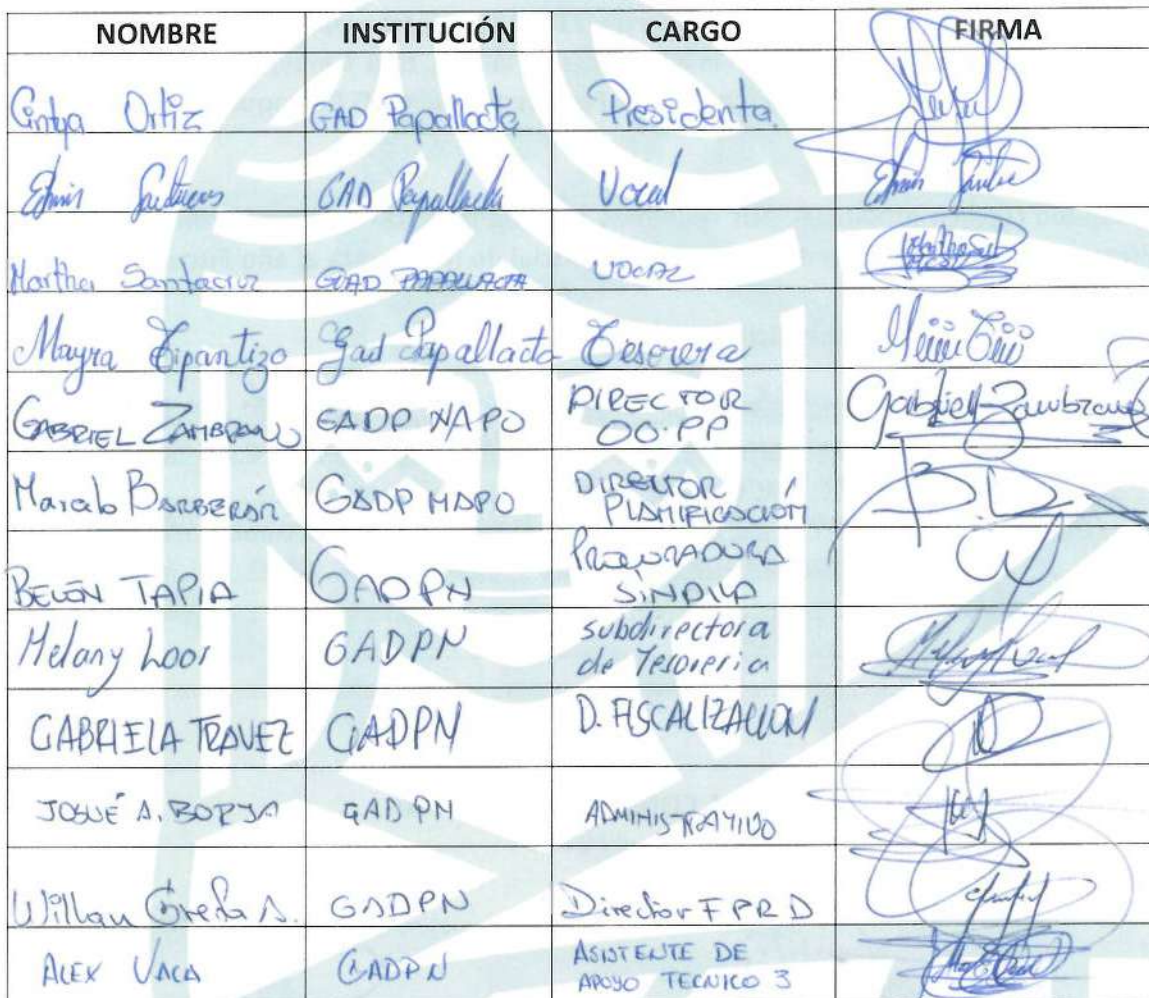 NOMBRE INSTITUCIÓN CARGO FIRMA
Cintya Ortiz GAD Papallacta Presidenta
Edwin GAD Papallacta Vocal Edwin
Martha Santacruz GAD PAPALLACTA VOCAL
Mayra Tipantizo Gad Papallacta Tesorera
GABRIEL ZAMBRANO GADP NAPO DIRECTOR OO.PP Gabriel Zambrano
Marcelo BARBERÁN GADP NAPO DIRECTOR PLANIFICACIÓN
BELÉN TAPIA GADPN PROCURADORA SINDICA
Melany Loor GADPN subdirectora de Tesoreria
GABRIELA TRAVEZ GADPN D. FISCALIZACION
JOSUÉ A. BORJA GADPN ADMINISTRATIVO
Willan A. GADPN Director F P R D
ALEX VACA GADPN ASISTENTE DE APOYO TECNICO 3